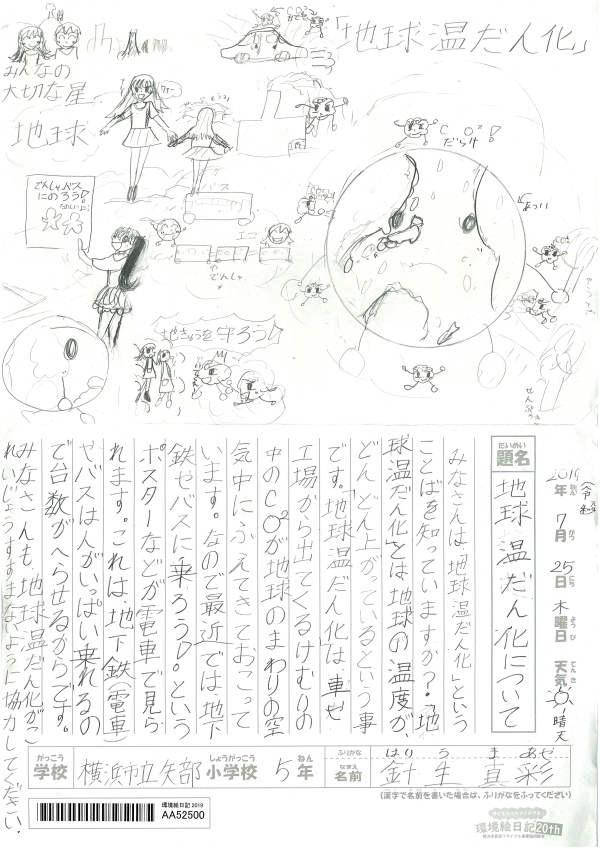 「地球温だん化」
みんなの
大切な星
地球
CO²
CO²
だらけ!
あつい
でんしゃバス
にのろう!
バス
エコ
でんしゃ
地きゅうを守ろう!
せんぷうき
2019
(令和
年 ねん
7
月 がつ
25
日 にち
木曜日 ようび
天気 てんき
晴天
だいめい
題名
地球温だん化について
みなさんは「地球温だん化」という
ことばを知っていますか?「地
球温だん化」とは地球の温度が、
どんどん上がっているという事
です。「地球温だん化」は、車や
工場から出てくるけむりの
中のCO²が地球のまわりの空
気中にふえてきておこって
います。なので最近では地下
鉄やバスに乗ろう!。という
ポスターなどが電車で見ら
れます。これは地下鉄(電車)
やバスは人がいっぱい乗れるの
で台数がへらせるからです。
みなさんも、地球温だん化がこ
れいじょうすすまないように協力してください。
がっこう
学校
横浜市立矢部
しょうがっこう
小学校
5
ねん
年
ふりがな
はり う ま あや
なまえ
名前
針生真彩
(漢字で名前を書いた場合は、ふりがなをふってください)
環境絵日記2019
AA52500
環境絵日記20th